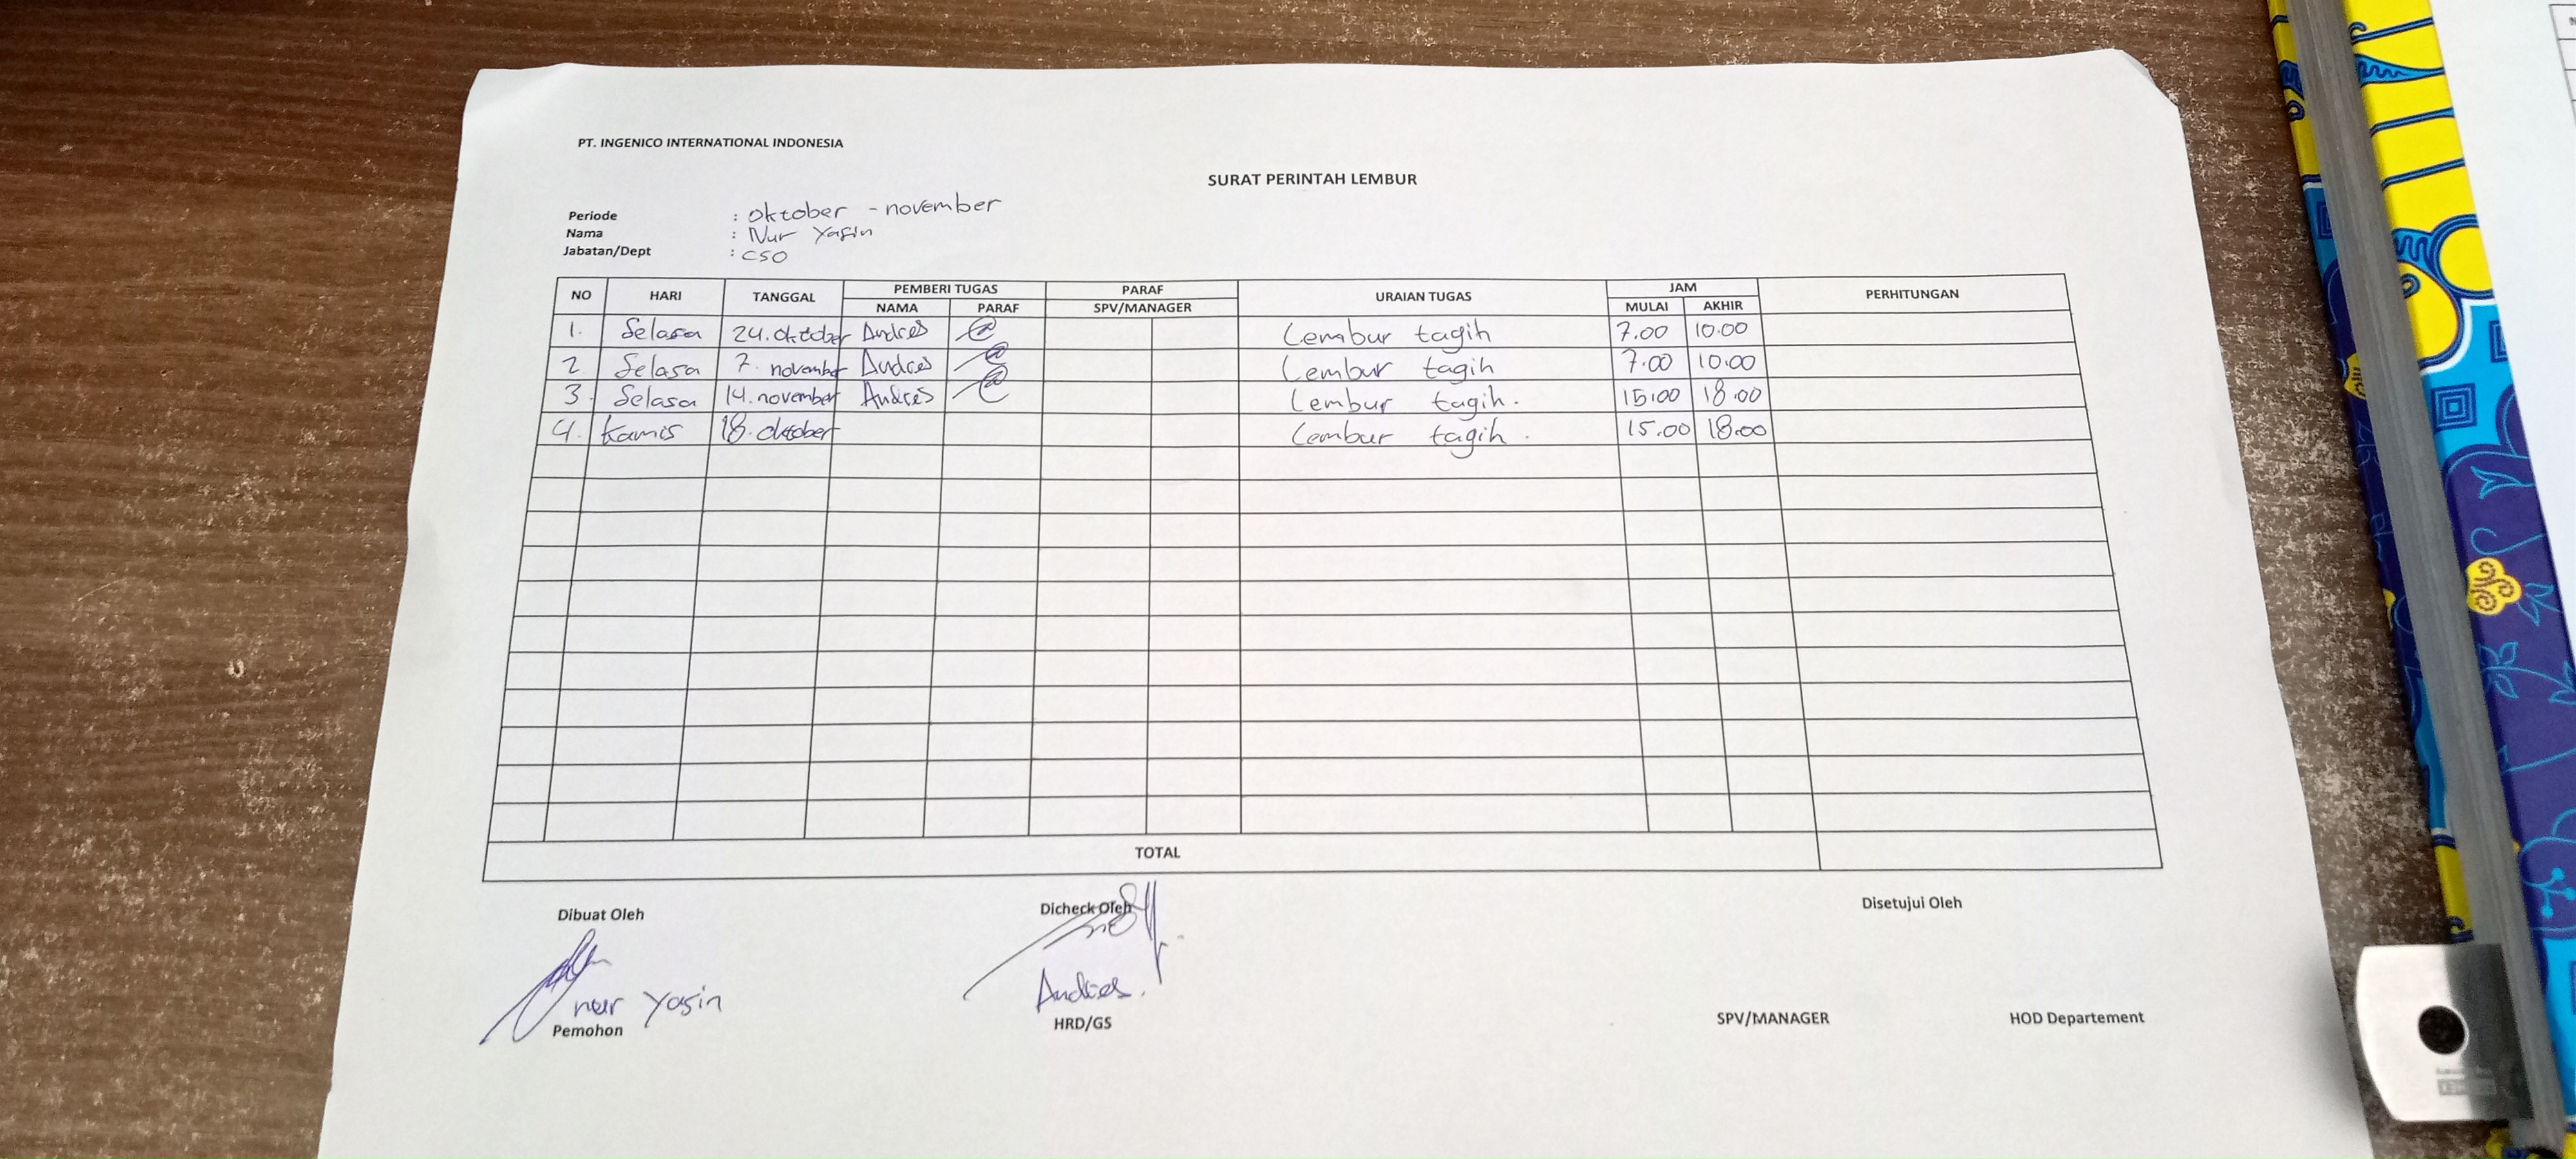 PT. INGENICO INTERNATIONAL INDONESIA
SURAT PERINTAH LEMBUR
Periode : oktober - november
Nama : Nur Yasin
Jabatan/Dept : CSO
NO HARI TANGGAL PEMBERI TUGAS PARAF URAIAN TUGAS JAM PERHITUNGAN
NAMA PARAF SPV/MANAGER MULAI AKHIR
1. Selasa 24. oktober Andres Lembur tagih 7.00 10.00
2 Selasa 7. november Andres Lembur tagih 7.00 10.00
3. Selasa 14. november Andres Lembur tagih. 15.00 18.00
4. Kamis 18. oktober Lembur tagih. 15.00 18.00
TOTAL
Dibuat Oleh Dicheck Oleh Disetujui Oleh
nur Yasin Andres.
Pemohon HRD/GS SPV/MANAGER HOD Departement